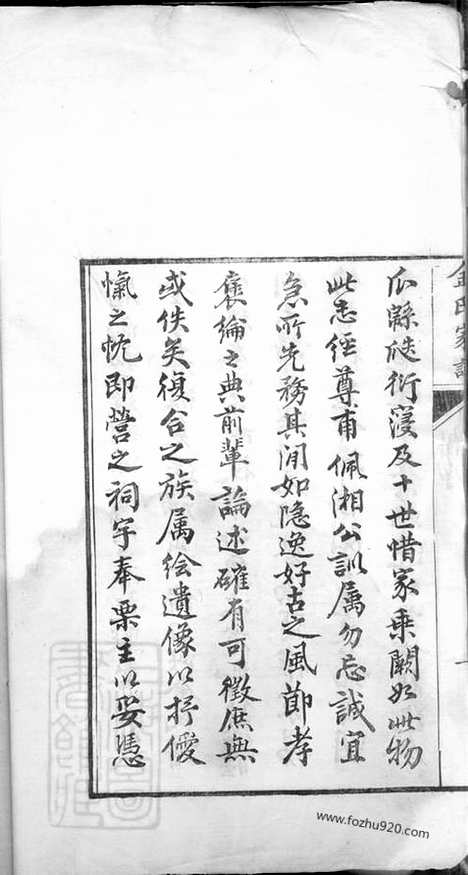 金氏家譜
瓜緜𤓰衍寖及十世惜家乘闕如此物
此志經尊甫佩湘公訓属勿忘誠宜
急所先務其间如隐逸好古之風節孝
褒綸之典前輩論述確有可徵庶無
或佚矣復合之族属绘遺像以抒僾
愾之忱即營之祠宇奉栗主以妥憑
www.fozhu920.com